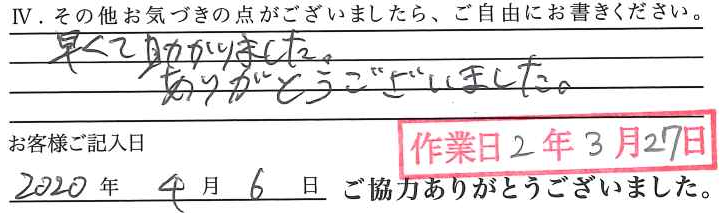 Ⅳ．その他お気づきの点がございましたら、ご自由にお書きください。
早くて助かりました。
ありがとうございました。
お客様ご記入日
作業日2年3月27日
2020年4月6日 ご協力ありがとうございました。